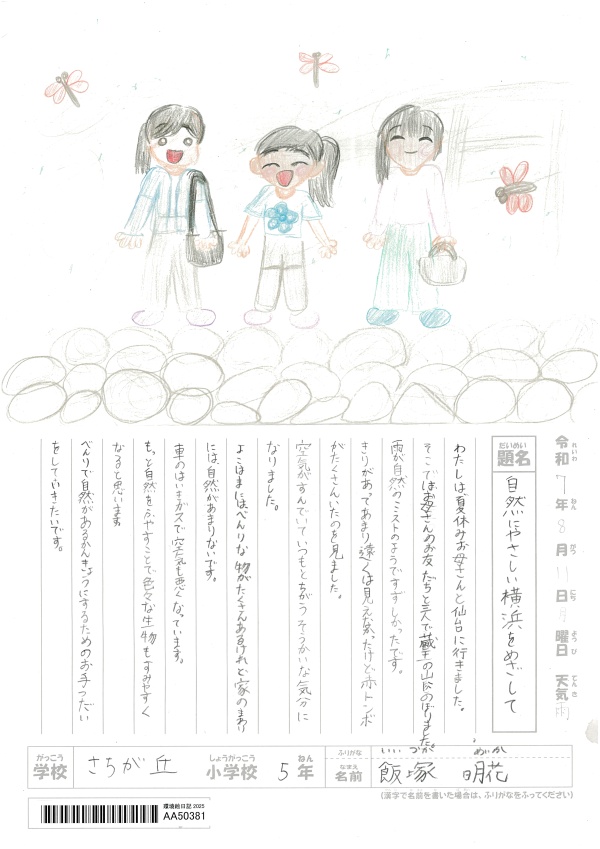 令和7年8月11日月曜日 天気雨
れいわ ねん がつ にち ようび てんき
だいめい
題名
自然にやさしい横浜をめざして
わたしは、夏休みお母さんと仙台に行きました。
そこではお母さんのお友だちと三人で蔵王の山にのぼりました。
雨が自然のミストのようですずしかったです。
きりがあってあまり遠くは見えなかったけど赤トンボ
がたくさんいたのを見ました。
空気がすんでいていつもとちがうそうかいな気分に
なりました。
よこはまには、べんりな物がたくさんあるけれど家のまわり
には自然があまりないです。
車のはいきガスで空気も悪くなっています。
もっと自然をふやすことで色々な生物もすみやすく
なると思います。
べんりで自然があるかんきょうにするためのお手つだい
をしていきたいです。
がっこう
学校
さちが丘
しょうがっこう
小学校
5年
ねん
ふりがな
いいづか めいか
なまえ
名前
飯塚 明花
(漢字で名前を書いた場合は、ふりがなをふってください)
環境絵日記 2025
AA50381